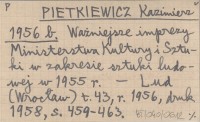 P PIETKIEWICZ Kazimierz
1956 b. Ważniejsze imprezy
Ministerstwa Kultury i Sztu-
ki w zakresie sztuki ludo-
wej w 1955 r. – Lud
(Wrocław) t. 43, r. 1956, druk
1958, s. 459-463.